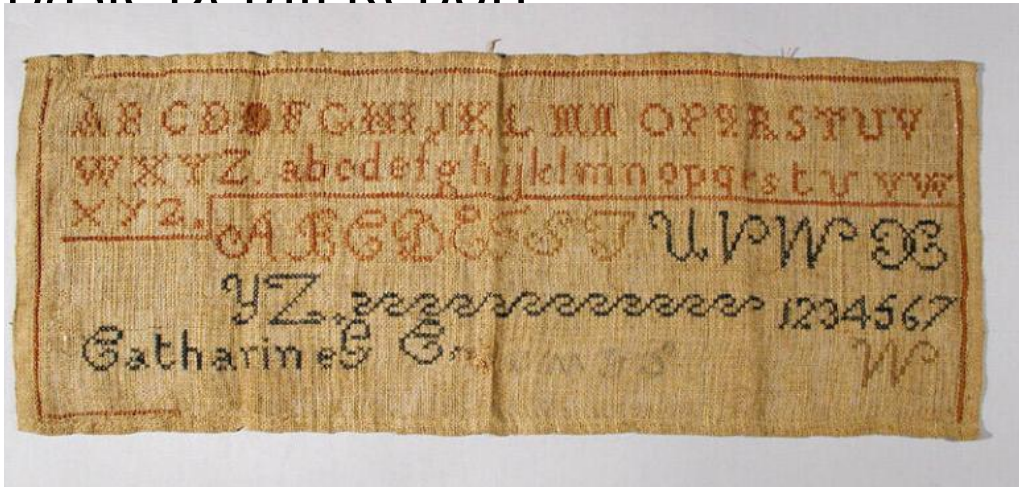 A B C D F G H I J K L M N O P Q R S T U V
W X Y Z. a b c d e f g h i j k l m n o p q r s t u v w
x y z. A B C D E S T U V W X
Y Z. 1234567
Catharine W